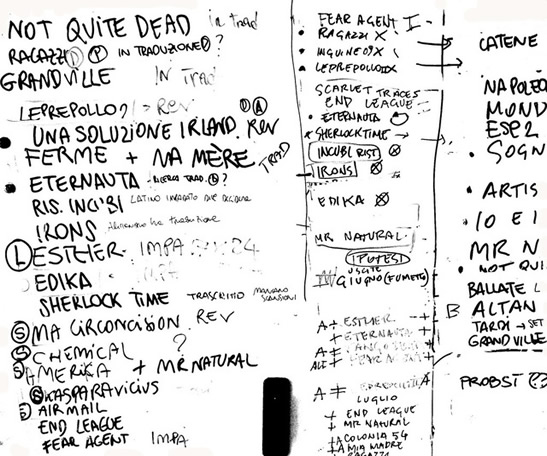 NOT QUITE DEAD in trad
RAGAZZI IN TRADUZIONE ?
GRANDVILLE IN TRAD
LEPREPOLLO REV
UNA SOLUZIONE IRLAND. REV
FERME + NA MÈRE TRAD
ETERNAUTA TRAD. ?
RIS. INCUBI LATINO
IRONS
ESTHER IMPA
EDIKA
SHERLOCK TIME TRASCRITTO
S MA CIRCONCISION REV
S CHEMICAL ?
S AMERIKA + MR NATURAL
S KASPARAVICIUS
AIRMAIL
END LEAGUE
FEAR AGENT IMPA
FEAR AGENT I
RAGAZZI X
INGUINE X
LEPREPOLLO X
SCARLET TRACES
END LEAGUE
ETERNAUTA
SHERLOCK TIME
INCUBI RIST
IRONS
EDIKA
MR NATURAL
IPOTESI
USCITE
GIUGNO (FUMETTO)
A ESTHER
ETERNAUTA
LUGLIO
+ END LEAGUE
+ MR NATURAL
COLONIA 54
MIA MADRE
RAGAZZI
CATENE
NAPOLEO
MOND
ESP2
SOGN
ARTIS
IO E I
MR N
NOT QUI
BALLATE L
B ALTAN
TARDI → SET
GRANDVILLE
PROBST